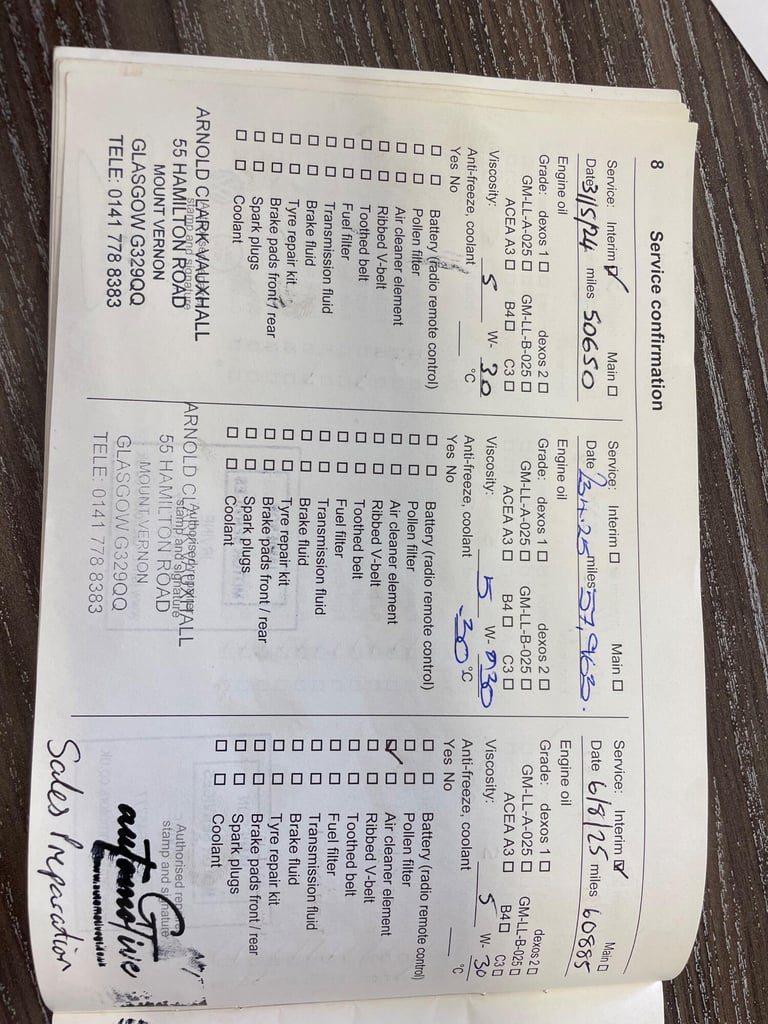 8 Service confirmation
Service: Interim ☑ Main ☐
Date 31/5/24 miles 50650
Engine oil
Grade: dexos 1 ☐ dexos 2 ☐
GM-LL-A-025 ☐ GM-LL-B-025 ☐
ACEA A3 ☐ B4 ☐ C3 ☐
Viscosity: 5 W- 30
Anti-freeze, coolant °C
Yes No
☐ ☐ Battery (radio remote control)
☐ ☐ Pollen filter
☐ ☐ Air cleaner element
☐ ☐ Ribbed V-belt
☐ ☐ Toothed belt
☐ ☐ Fuel filter
☐ ☐ Transmission fluid
☐ ☐ Brake fluid
☐ ☐ Tyre repair kit
☐ ☐ Brake pads front / rear
☐ ☐ Spark plugs
☐ ☐ Coolant
stamp and signature
ARNOLD CLARK VAUXHALL
55 HAMILTON ROAD
MOUNT VERNON
GLASGOW G329QQ
TELE: 0141 778 8383
Service: Interim ☐ Main ☐
Date 4.25 miles 57,963.
Engine oil
Grade: dexos 1 ☐ dexos 2 ☐
GM-LL-A-025 ☐ GM-LL-B-025 ☐
ACEA A3 ☐ B4 ☐ C3 ☐
Viscosity: 5 W- 30
Anti-freeze, coolant -30 °C
Yes No
☐ ☐ Battery (radio remote control)
☐ ☐ Pollen filter
☐ ☐ Air cleaner element
☐ ☐ Ribbed V-belt
☐ ☐ Toothed belt
☐ ☐ Fuel filter
☐ ☐ Transmission fluid
☐ ☐ Brake fluid
☐ ☐ Tyre repair kit
☐ ☐ Brake pads front / rear
☐ ☐ Spark plugs
☐ ☐ Coolant
Authorised repairer
stamp and signature
ARNOLD CLARK VAUXHALL
55 HAMILTON ROAD
MOUNT VERNON
GLASGOW G329QQ
TELE: 0141 778 8383
Service: Interim ☑ Main ☐
Date 6/8/25 miles 60885
Engine oil
Grade: dexos 1 ☐ dexos 2 ☐
GM-LL-A-025 ☐ GM-LL-B-025 ☐
ACEA A3 ☐ B4 ☐ C3 ☐
Viscosity: 5 W- 30
Anti-freeze, coolant °C
Yes No
☐ ☐ Battery (radio remote control)
☐ ☐ Pollen filter
☑ ☐ Air cleaner element
☐ ☐ Ribbed V-belt
☐ ☐ Toothed belt
☐ ☐ Fuel filter
☐ ☐ Transmission fluid
☐ ☐ Brake fluid
☐ ☐ Tyre repair kit
☐ ☐ Brake pads front / rear
☐ ☐ Spark plugs
☐ ☐ Coolant
Authorised
stamp and signature
automotive
Sales Preparation